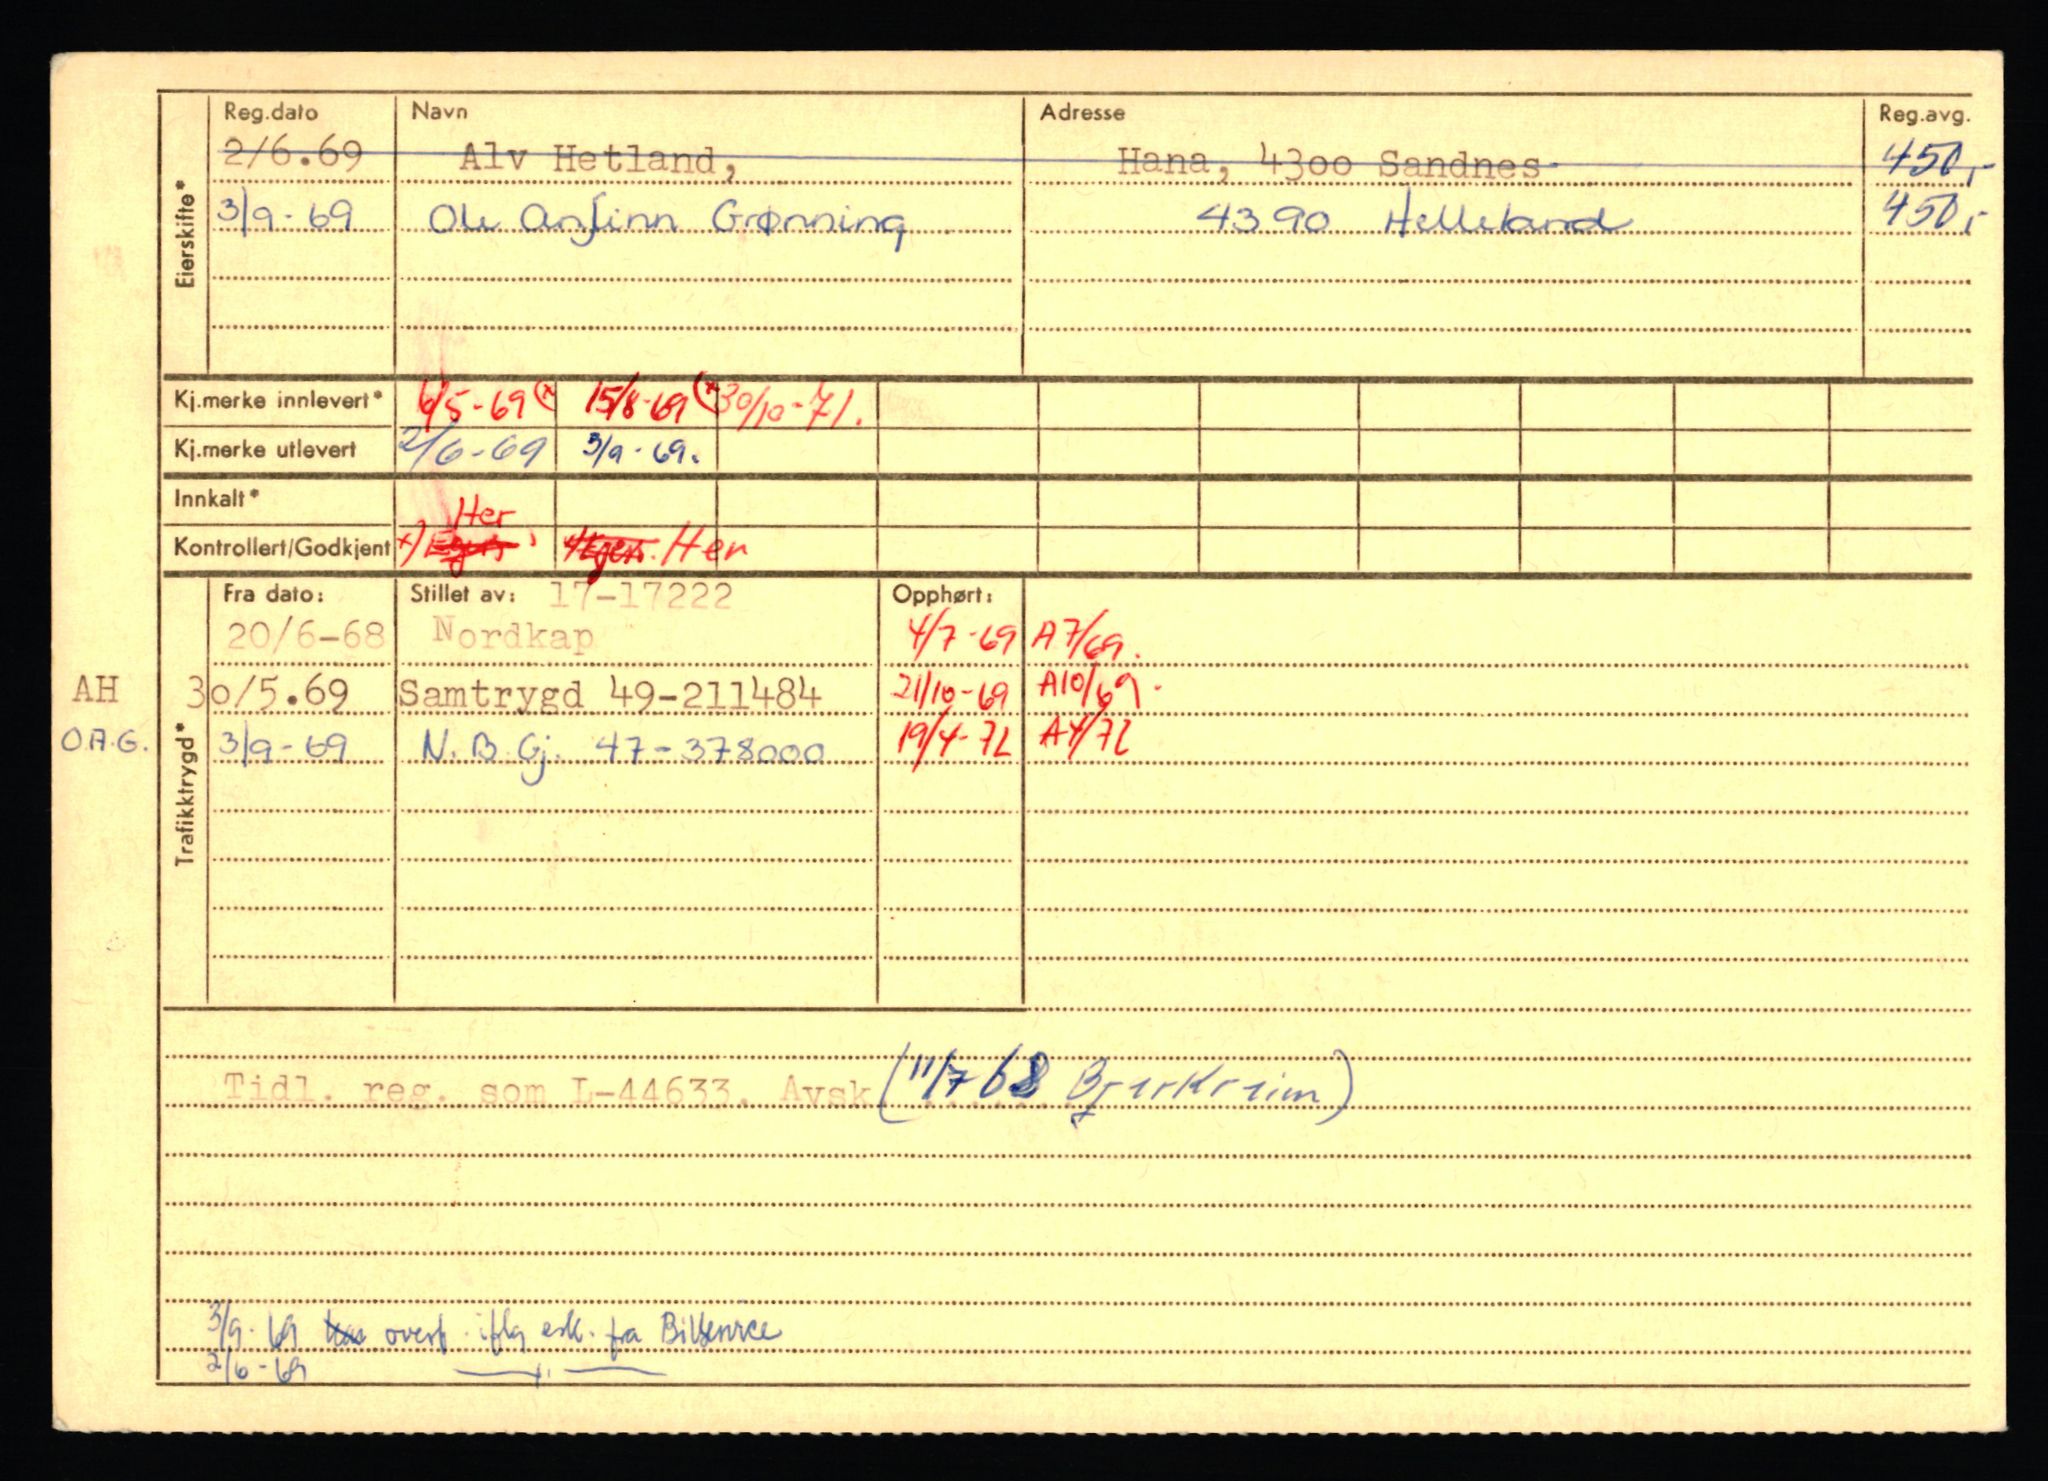 Reg.dato Navn Adresse Reg.avg.
2/6.69 Alv Hetland, Hana, 4300 Sandnes 450,-
3/9-69 Ole Anfinn Grønning 4390 Helleland 450,-
Eierskifte*
Kj.merke innlevert* 6/5-69 (x 15/8-69 (x 30/10-71.
Kj.merke utlevert 2/6-69 3/9-69.
Innkalt* Her
Kontrollert/Godkjent x) Egers x) Egers. Her
Fra dato: Stillet av: 17-17222 Opphørt:
20/6-68 Nordkap 4/7-69 A7/69.
AH 30/5.69 Samtrygd 49-211484 21/10-69 A10/69.
O.A.G. 3/9-69 N.B.Gj. 47-378000 19/4-72 A4/72
Trafikktrygd*
Tidl. reg. som L-44633. Avsk. (11/7 68 Bjerkreim)
3/9-69 overf. iflg erk. fra Bilservice
2/6-69